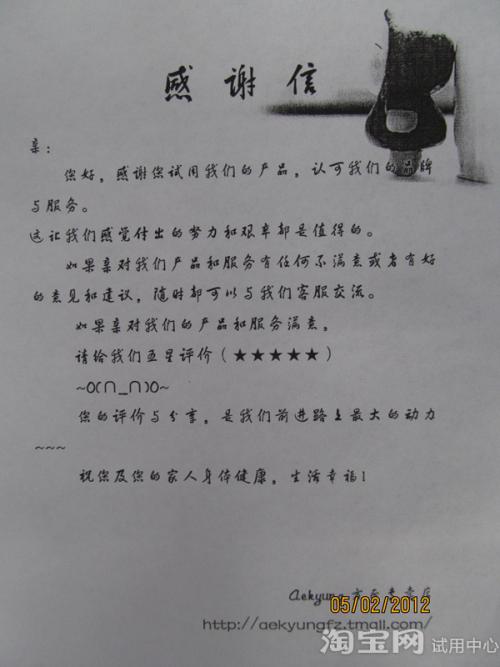 感谢信
亲：
您好，感谢您试用我们的产品，认可我们的品牌
与服务。
这让我们感觉付出的努力和艰辛都是值得的。
如果亲对我们产品和服务有任何不满意或者有好
的意见和建议，随时都可以与我们客服交流。
如果亲对我们的产品和服务满意，
请给我们五星评价（★★★★★）
~O(∩_∩)O~
您的评价与分享，是我们前进路上最大的动力
~~~
祝您及您的家人身体健康，生活幸福！
Aekyung
05/02/2012
http://aekyungfz.tmall.com/
淘宝网试用中心